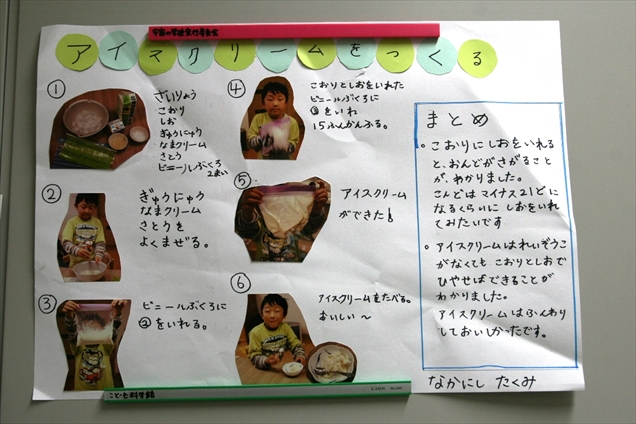 アイスクリームをつくる
①
ざいりょう
こおり
しお
ぎゅうにゅう
なまクリーム
さとう
ビニールぶくろ
2まい
②
ぎゅうにゅう
なまクリーム
さとうを
よくまぜる。
③
ビニールぶくろに
②をいれる。
④
こおりとしおをいれた
ビニールぶくろに
③をいれ
15ふんかんふる。
⑤
アイスクリーム
ができた!
⑥
アイスクリームをたべる。
おいしい〜
まとめ
。こおりにしおをいれる
と、おんどがさがること
が、わかりました。
こんどはマイナス21どに
なるくらいに しおをいれ
てみたいです
。アイスクリームはれいぞうこ
がなくても こおりとしおで
ひやせばできることが
わかりました。
アイスクリームはふんわり
しておいしかったです。
なかにし たくみ
こども科学館